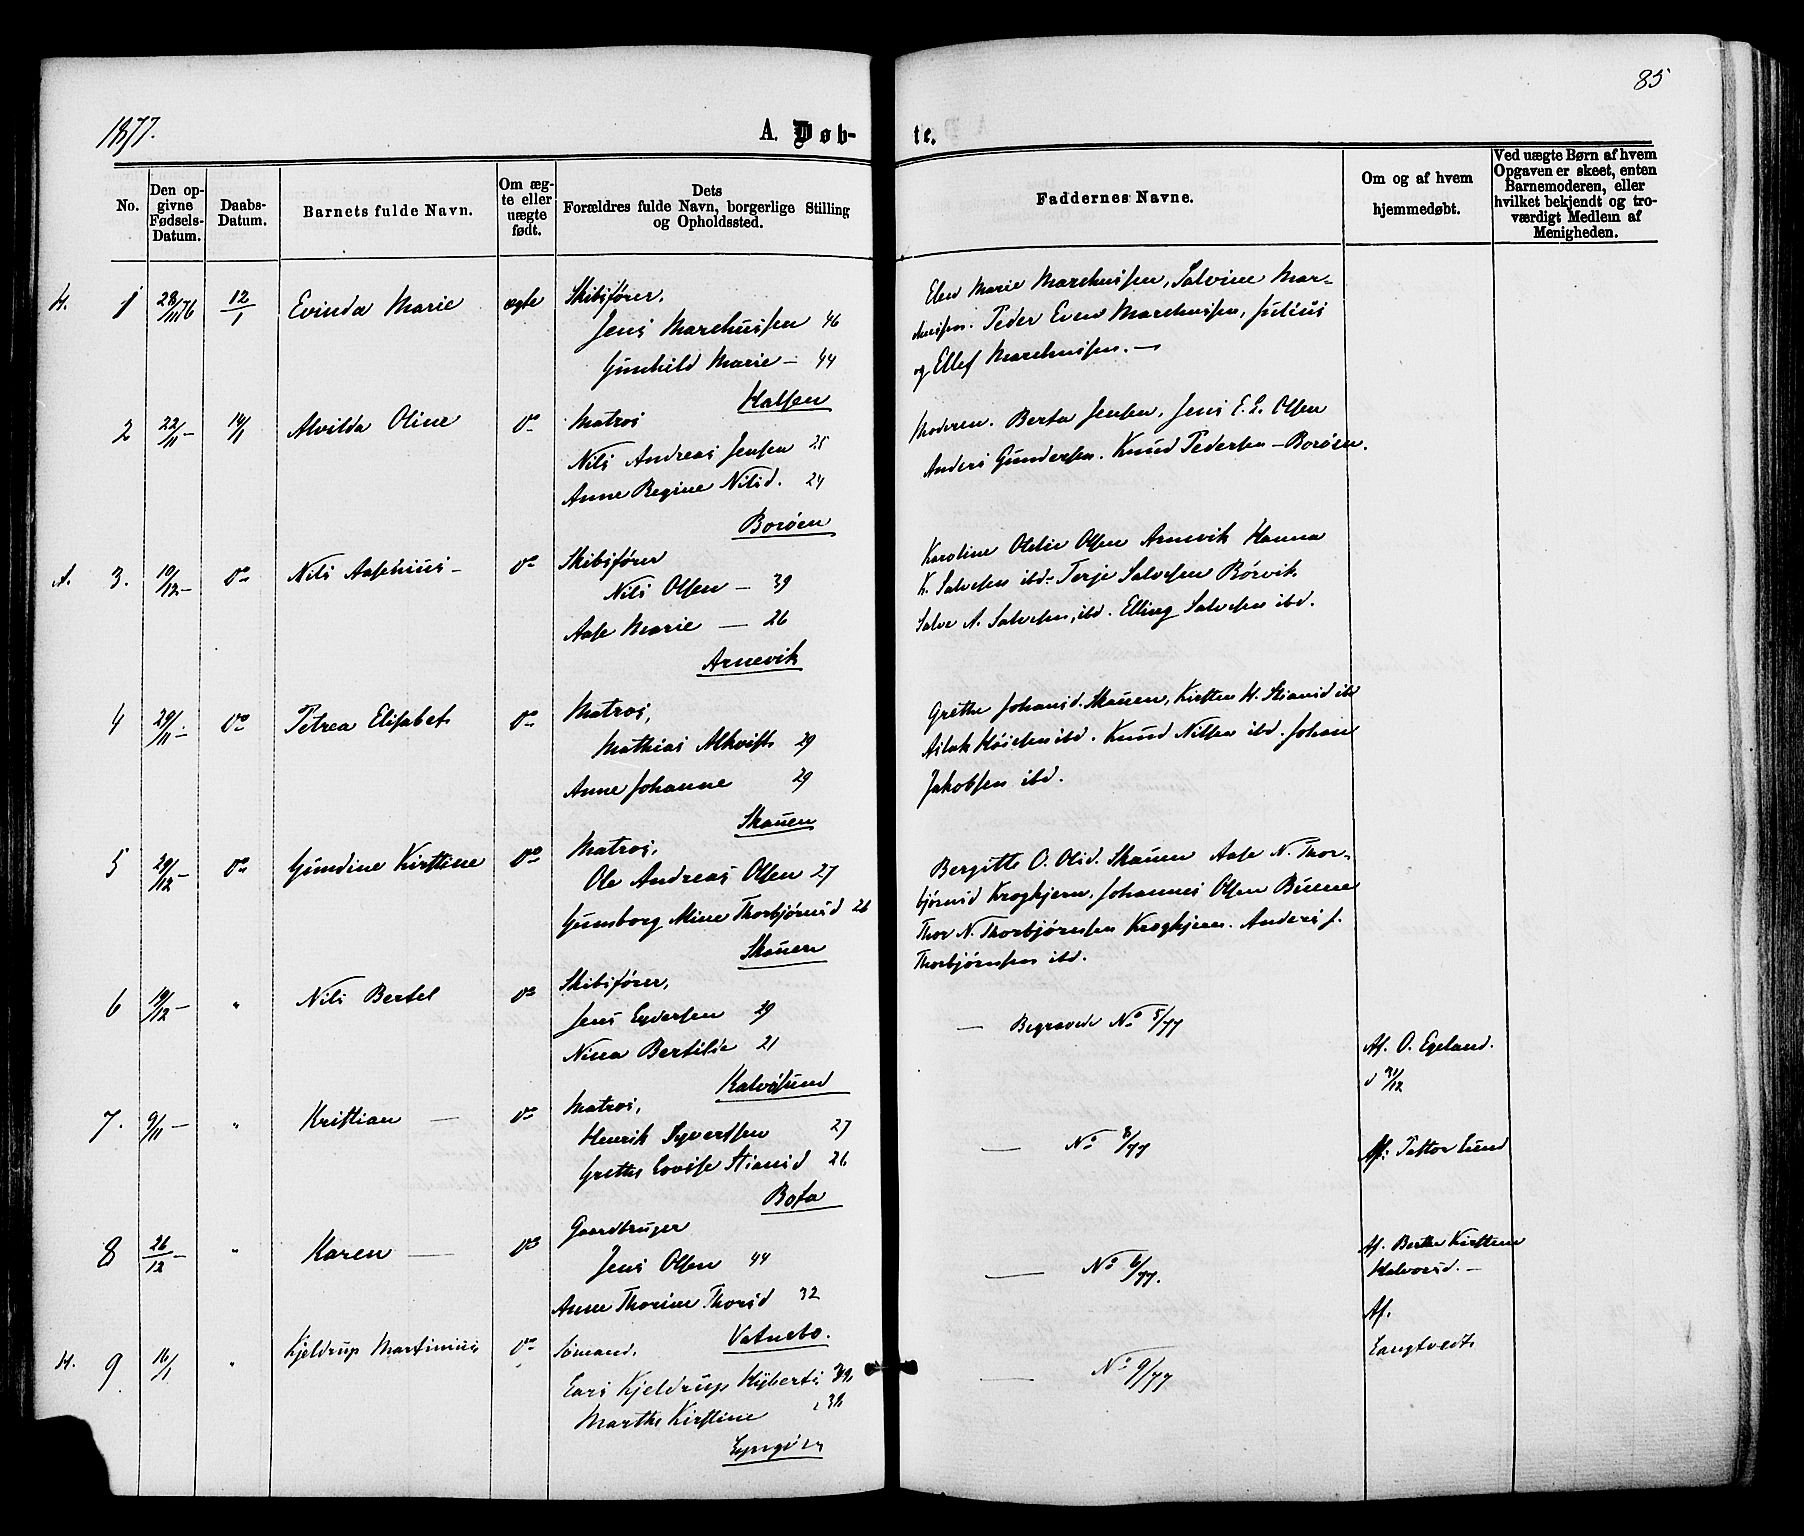 85
1877.
A. Døb-
te.
No.
Den op-
givne
Fødsels-
Datum.
Daabs-
Datum.
Barnets fulde Navn.
Om æg-
te eller
uægte
født.
Dets
Forældres fulde Navn, borgerlige Stilling
og Opholdssted.
Faddernes Navne.
Om og af hvem
hjemmedøbt.
Ved uægte Børn af hvem
Opgaven er skeet, enten
Barnemoderen, eller
hvilket bekjendt og tro-
værdigt Medlem af
Menigheden.
H. 1 28/11 76 12/1 Evinda Marie ægte Skibsfører,
Jens Marchussen 46
Gunhild Marie — 44
Halsen
Elen Marie Marchussen, Salvine Mar-
chussen. Peder Even Marchussen, Julius
og Ellef Marchussen. —
2 22/11 — 14/1 Alvilda Oline do Matros
Nils Andreas Jensen 25
Anne Regine Nilsd. 24
Borøen
Moderen. Berta Jensen, Jens E. L. Olsen
Anders Gundersen. Knud Pedersen — Borøen.
A. 3. 10/12 — do Nils Aasenius — do Skibsfører
Nils Olsen — 39
Aase Marie — 26
Arnevik
Karoline Otelie Olsen Arnevik Hanna
K. Salvesen ibd. Terje Salvesen Börvik
Salve A. Salvesen, ibd. Elling Salvesen ibd.
4 29/11 — do Petrea Elisabet do Matros,
Mathias Alkvist 29
Anne Johanne 29
Skauen
Grethe Johansd. Skauen, Kirsten H. Stiansd ibd
Aslak Høiesen ibd. Knud Nilsen ibd. Johan
Jakobsen ibd.
5 29/12 — do Gundine Kirstine do Matros,
Ole Andreas Olsen 27
Gunborg Mine Thorbjørnsd 26
Skauen
Bergitte O. Olsd. Skauen Aase N. Thor-
bjørnsd Krogkjern, Johannes Olsen Bunne
Thor N. Thorbjørnsen Krogkjern. Anders J.
Thorbjørnsen ibd.
6 19/12 — " Nils Bertel do Skibsfører,
Jens Syversen 29
Nina Bertilsd 21
Kalvøsund
— Begravede No 5/77
Af. O. Egeland.
d 31/12
7. 9/11 — " Kristian — do Matros,
Henrik Syvertsen 27
Grethe Lovise Stiansd 26
Bota
— No 8/77
Af. Pastor Lund
8 26/12 — " Karen — do Gaardbruger
Jens Olsen 44
Anne Thorine Thorsd 32
Vatnebo.
— No 6/77.
Af. Berthe Kirstine
Halvorsd. —
H. 9 16/1 " Kjeldrup Martinius do Sømand,
Lars Kjeldrup Hyberts
Marthe Kirstine
Lyngør
— No 9/77
Af.
Langtvedt